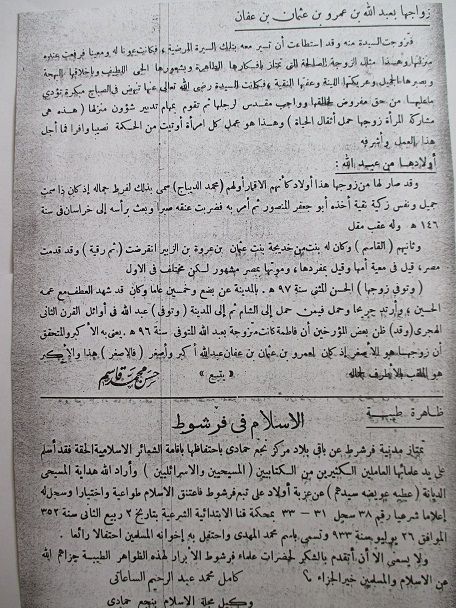 زواجها بعبد الله بن عمرو بن عثمان بن عفان
فتزوجت السيدة منه وقد استطاعت أن تسير معه بتلك السيرة المرضية، فكانت عونا له ومعينا فرفعت عنده
منزلتها وهذا مثل الزوجة الصالحة التى تمتاز بأفكارها الطاهرة وبشعورها الحى اللطيف وبأخلاقها البهجة
وبصبرها الجميل وعريكتها اللينة وعفتها النقية، فكانت السيدة رضى الله تعالى عنها تنهض فى الصباح مبكرة تؤدى
ماعليها من حق مفروض لخالقها وواجب مقدس لرجلها ثم تقوم بمهام تدبير شؤون منزلها ( هذه هى
مشاركة المرأة زوجها حمل أثقال الحياة ) وهذا هو عمل كل امرأة أوتيت من الحكمة نصيبا وافرا فما أجل
هذا العمل وأشرفه
أولادها من عبد الله :
وقد صار لها من زوجها هذا أولاد كأنهم الاقمار أولهم ( محمد الديباج ) سمى بذلك لفرط جماله إذ كان ذا سمت
جميل ونفس زكية نقية أخذه أبو جعفر المنصور ثم أمر به فضربت عنقه صبرا وبعث رأسه إلى خراسان فى سنة
١٤٦ هـ وله عقب مقل
وثانيهم ( القاسم ) وكان له بنت من خديجة بنت عثمان بن عروة بن الزبير انقرضت ( ثم رقية ) وقد قدمت
مصر، قيل فى معية أمها وقيل بمفردها، وموتها بمصر مشهور لكن مختلف فى الاول
( وتوفى زوجها ) الحسن المثنى سنة ٩٧ هـ . بالمدينة عن بضع وخمسين عاما وكان قد شهد الطف مع عمه
الحسين، وارتد جريحا وحمل فيمن حمل إلى الشام ثم إلى المدينة ( وتوفى ) عبد الله فى أوائل القرن الثانى
الهجرى ( وقد ) ظن بعض المؤرخين أن فاطمة كانت متزوجة بعبد الله المتوفى سنة ٩٦ هـ . يعنى به الأكبر والمتحقق
أن زوجها هو الأصغر إذ كان لعمرو بن عثمان بن عفان عبد الله أكبر وأصغر ( فالاصغر ) هذا والأكبر
هو الملقب بالمطرف لجماله
« يتبع »
حسن محمد قاسم
ظاهرة طيبة
الاسلام فى فرشوط
تمتاز مدينة فرشوط عن باقى بلاد مركز نجع حمادى باحتفاظها باقامة الشعائر الاسلامية الحقة فقد أسلم
على يد علمائها العاملين الكثيرين من الكتابيين ( المسيحيين والاسرائيليين ) وأراد الله هداية المسيحى
الديانة ( عطيه عويضه سيدهم ) من عزبة أولاد على تبع فرشوط فاعتنق الاسلام طواعية واختيارا وسجل له
إعلاما شرعيا رقم ٣٨ سجل ٣١ — ٣٣ بمحكمة قنا الابتدائية الشرعية بتاريخ ٢ ربيع الثانى سنة ٣٥٢
الموافق ٢٦ يوليو سنة ٩٣٣ وتسمى باسم محمد المهدى واحتفل به إخوانه المسلمين احتفالا رائعا .
ولا يسعى الا أن أتقدم بالشكر لحضرات علماء فرشوط الأبرار لهذه الظواهر الطيبة جزاهم الله
عن الاسلام والمسلمين خير الجزاء
كامل محمد عبد الرحيم الساعاتى
وكيل مجلة الاسلام بنجع حمادى